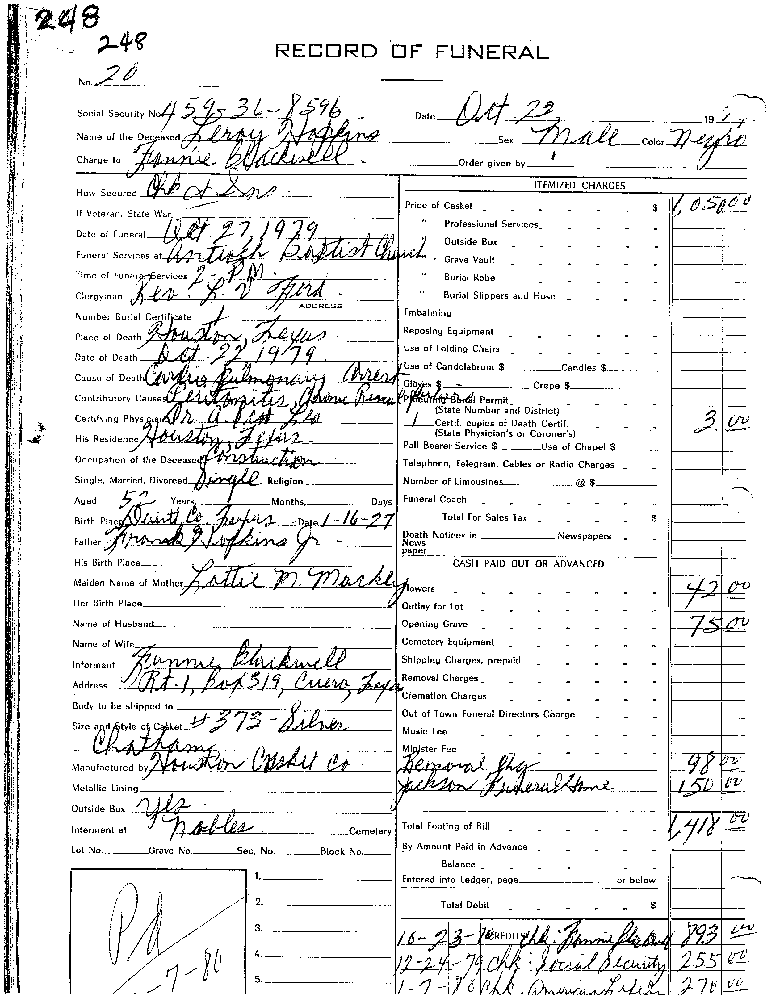 248
248
RECORD OF FUNERAL
No. 20
Social Security No. 459-36-8596
Date Oct 23 19
Name of the Deceased Leroy Hopkins
Sex Male Color Negro
Charge to Fannie Blackwell
Order given by
How Secured Chk & Ins
If Veteran, State War
Date of Funeral Oct 27, 1979
Funeral Services at Antioch Baptist Church
Time of Funeral Services 2 - P.M.
Clergyman Rev. L. V. Ford
ADDRESS
Number Burial Certificate
Place of Death Houston, Texas
Date of Death Oct 22 1979
Cause of Death Pulmonary Arrest
Contributory Causes Peritonitis,
Certifying Physician Dr. A.
His Residence Houston, Texas
Occupation of the Deceased Construction
Single, Married, Divorced Single Religion
Aged 52 Years, Months, Days
Birth Place Dewitt Co. Texas Date 1-16-27
Father Frank Hopkins Jr
His Birth Place
Maiden Name of Mother Lottie M. Mackey
Her Birth Place
Name of Husband
Name of Wife
Informant Fannie Blackwell
Address Rt. 1, Box 319, Cuero, Texas
Body to be shipped to
Size and Style of Casket #373 - Silver
Chatham
Manufactured by Houston Casket Co
Metallic Lining
Outside Box Yes
Interment at Nobles Cemetery
Lot No. Grave No. Sec. No. Block No.
Pd
-7-80
1.
2.
3.
4.
5.
ITEMIZED CHARGES
Price of Casket $ 1,050 00
" Professional Services
" Outside Box
" Grave Vault
" Burial Robe
" Burial Slippers and Hose
Embalming
Reposing Equipment
Use of Folding Chairs
Use of Candelabrum $ Candles $
Gloves $ Crepe $
Burial Permit
(State Number and District)
1 Certif. copies of Death Certif. 3 00
(State Physician's or Coroner's)
Pall Bearer Service $ Use of Chapel $
Telephone, Telegram, Cables or Radio Charges
Number of Limousines @ $
Funeral Coach
Total For Sales Tax $
Death Notices in Newspapers
News
paper
CASH PAID OUT OR ADVANCED
Flowers 42 00
Outlay for Lot
Opening Grave 75 00
Cemetery Equipment
Shipping Charges, prepaid
Removal Charges
Cremation Charges
Out of Town Funeral Directors Charge
Music Fee
Minister Fee
Removal Chg 98 00
Jackson Funeral Home 150 00
Total Footing of Bill 1,418 00
By Amount Paid in Advance
Balance
Entered into Ledger, page or below
Total Debit $
10-23-79 CREDITS Chk: Fannie Blackwell 893 00
12-24-79 Chk: Social Security 255 00
1-7-80 Chk American 270 00